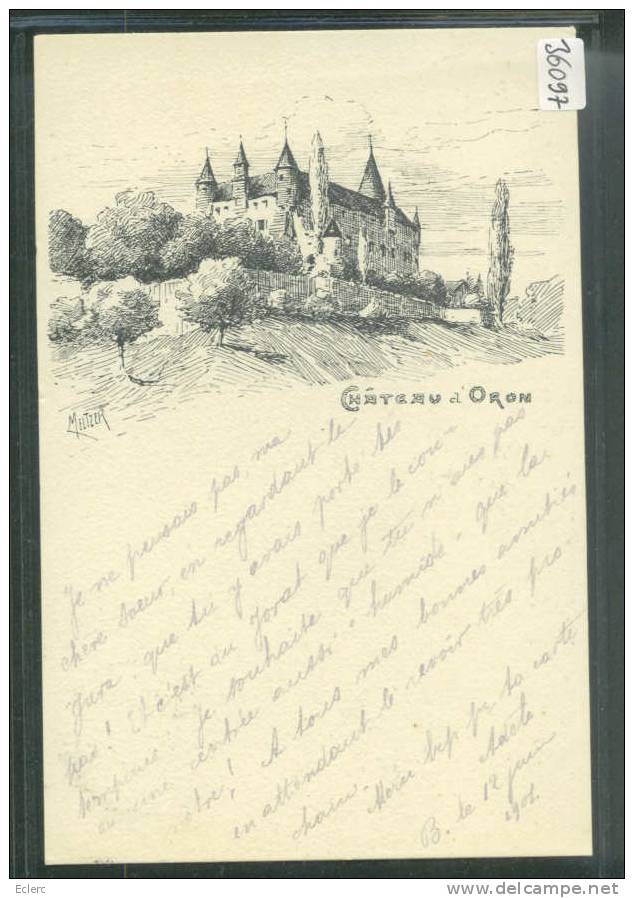 36097
CHÂTEAU d'ORON
MEITZER
Je ne pensais pas, ma
chère soeur, en regardant le
Jura, que tu y avais porté tes
pas! Et c'est du Jorat que je le con-
temple! Je souhaite que tu n'aies pas
eu une rentrée aussi "humide" que la
nôtre! A tous mes bonnes amitiés
en attendant le revoir très pro-
chain. Merci bcp pr ta carte
Adèle.
B. le 12 juin
1901.
Eclerc
www.delcampe.net